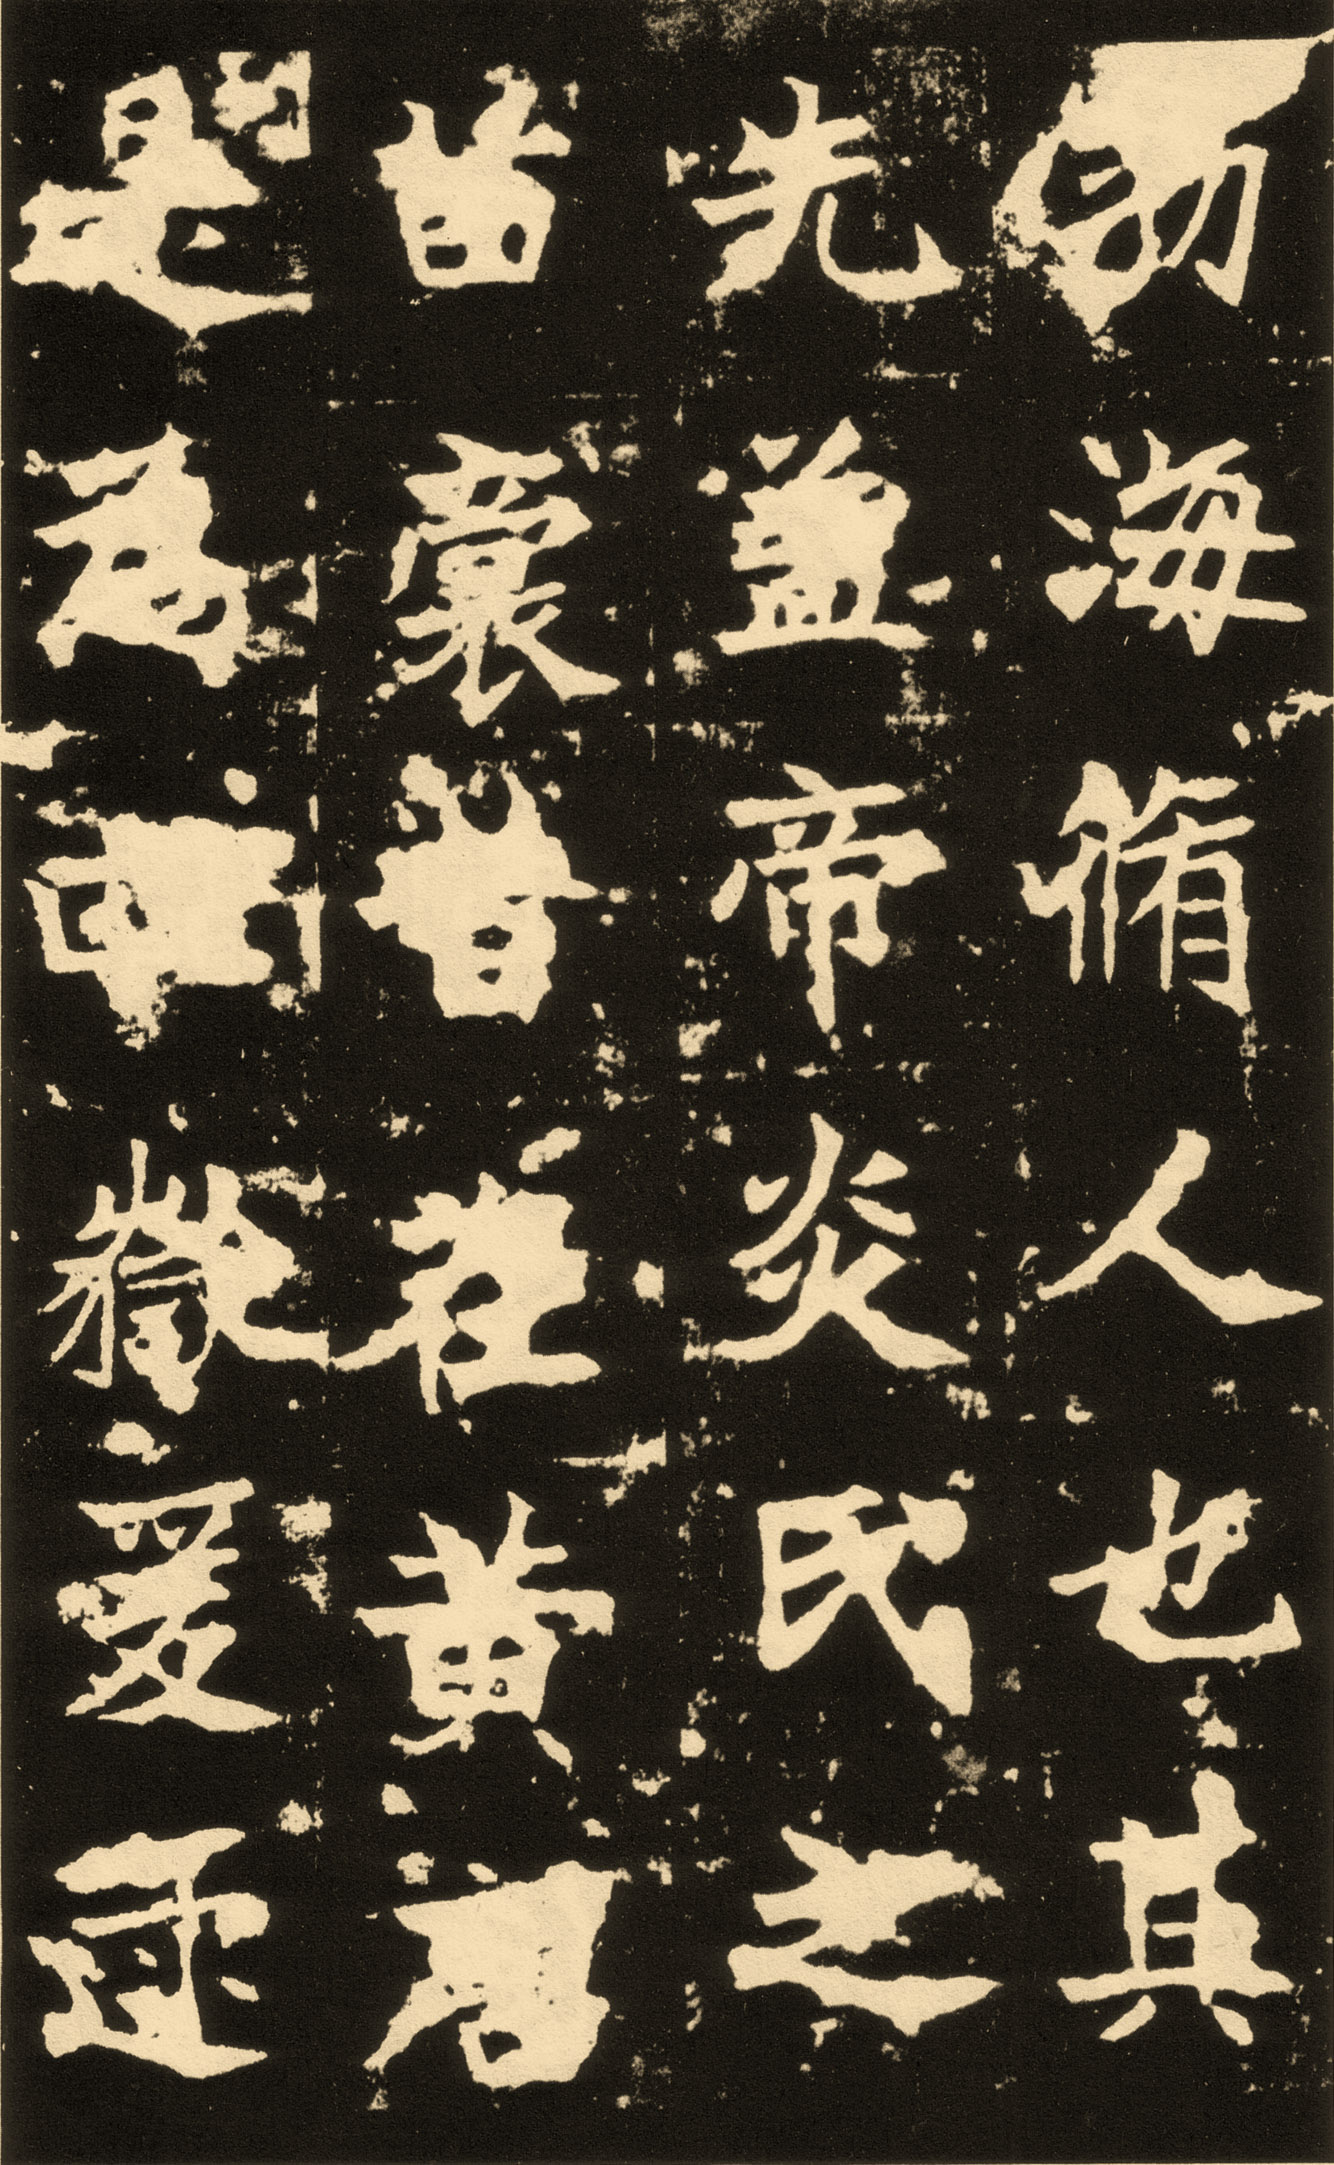 勃海脩人也其
先蓋帝炎氏之
苗裔昔在黃唐
是為四嶽爰逮